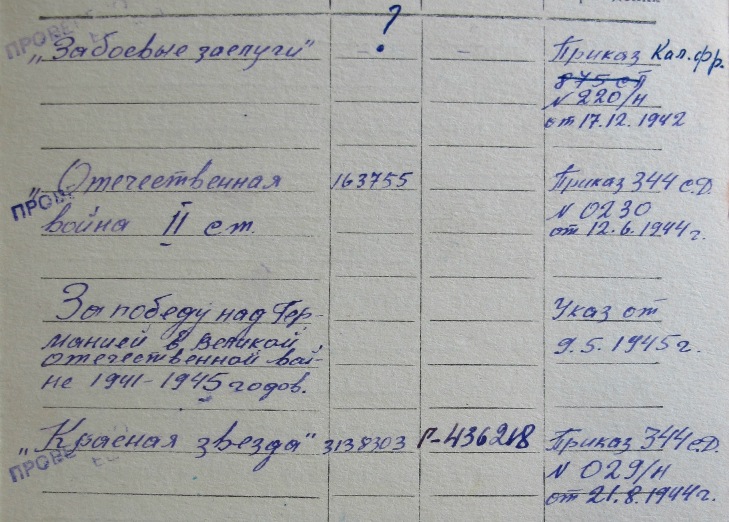 ?
„За боевые заслуги" – • – Приказ Кал. фр.
875 сп
N 220/н
от 17.12.1942
„Отечественная 163755 Приказ 344 с.Д.
война II ст. N 0230
от 12.6.1944 г.
За победу над Гер- Указ от
манией в Великой 9.5.1945 г.
отечественной вой-
не 1941-1945 годов.
„Красная звезда" 3138303 Г-436218 Приказ 344 с.Д.
N 029/н
от 21.8.1944 г.
ПРОВЕ
ПРОВЕ
ПРОВЕ